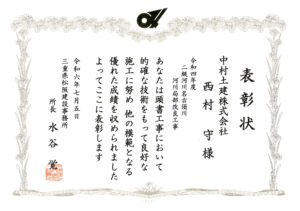 表彰状
中村土建株式会社
西村 守様
令和四年度
二級河川名古須川
河川局部改良工事
あなたは頭書工事において
的確な技術をもって良好な
施工に努め 他の模範となる
優れた成績を収められました
よってここに表彰します
令和六年七月五日
三重県松阪建設事務所
所長 水谷